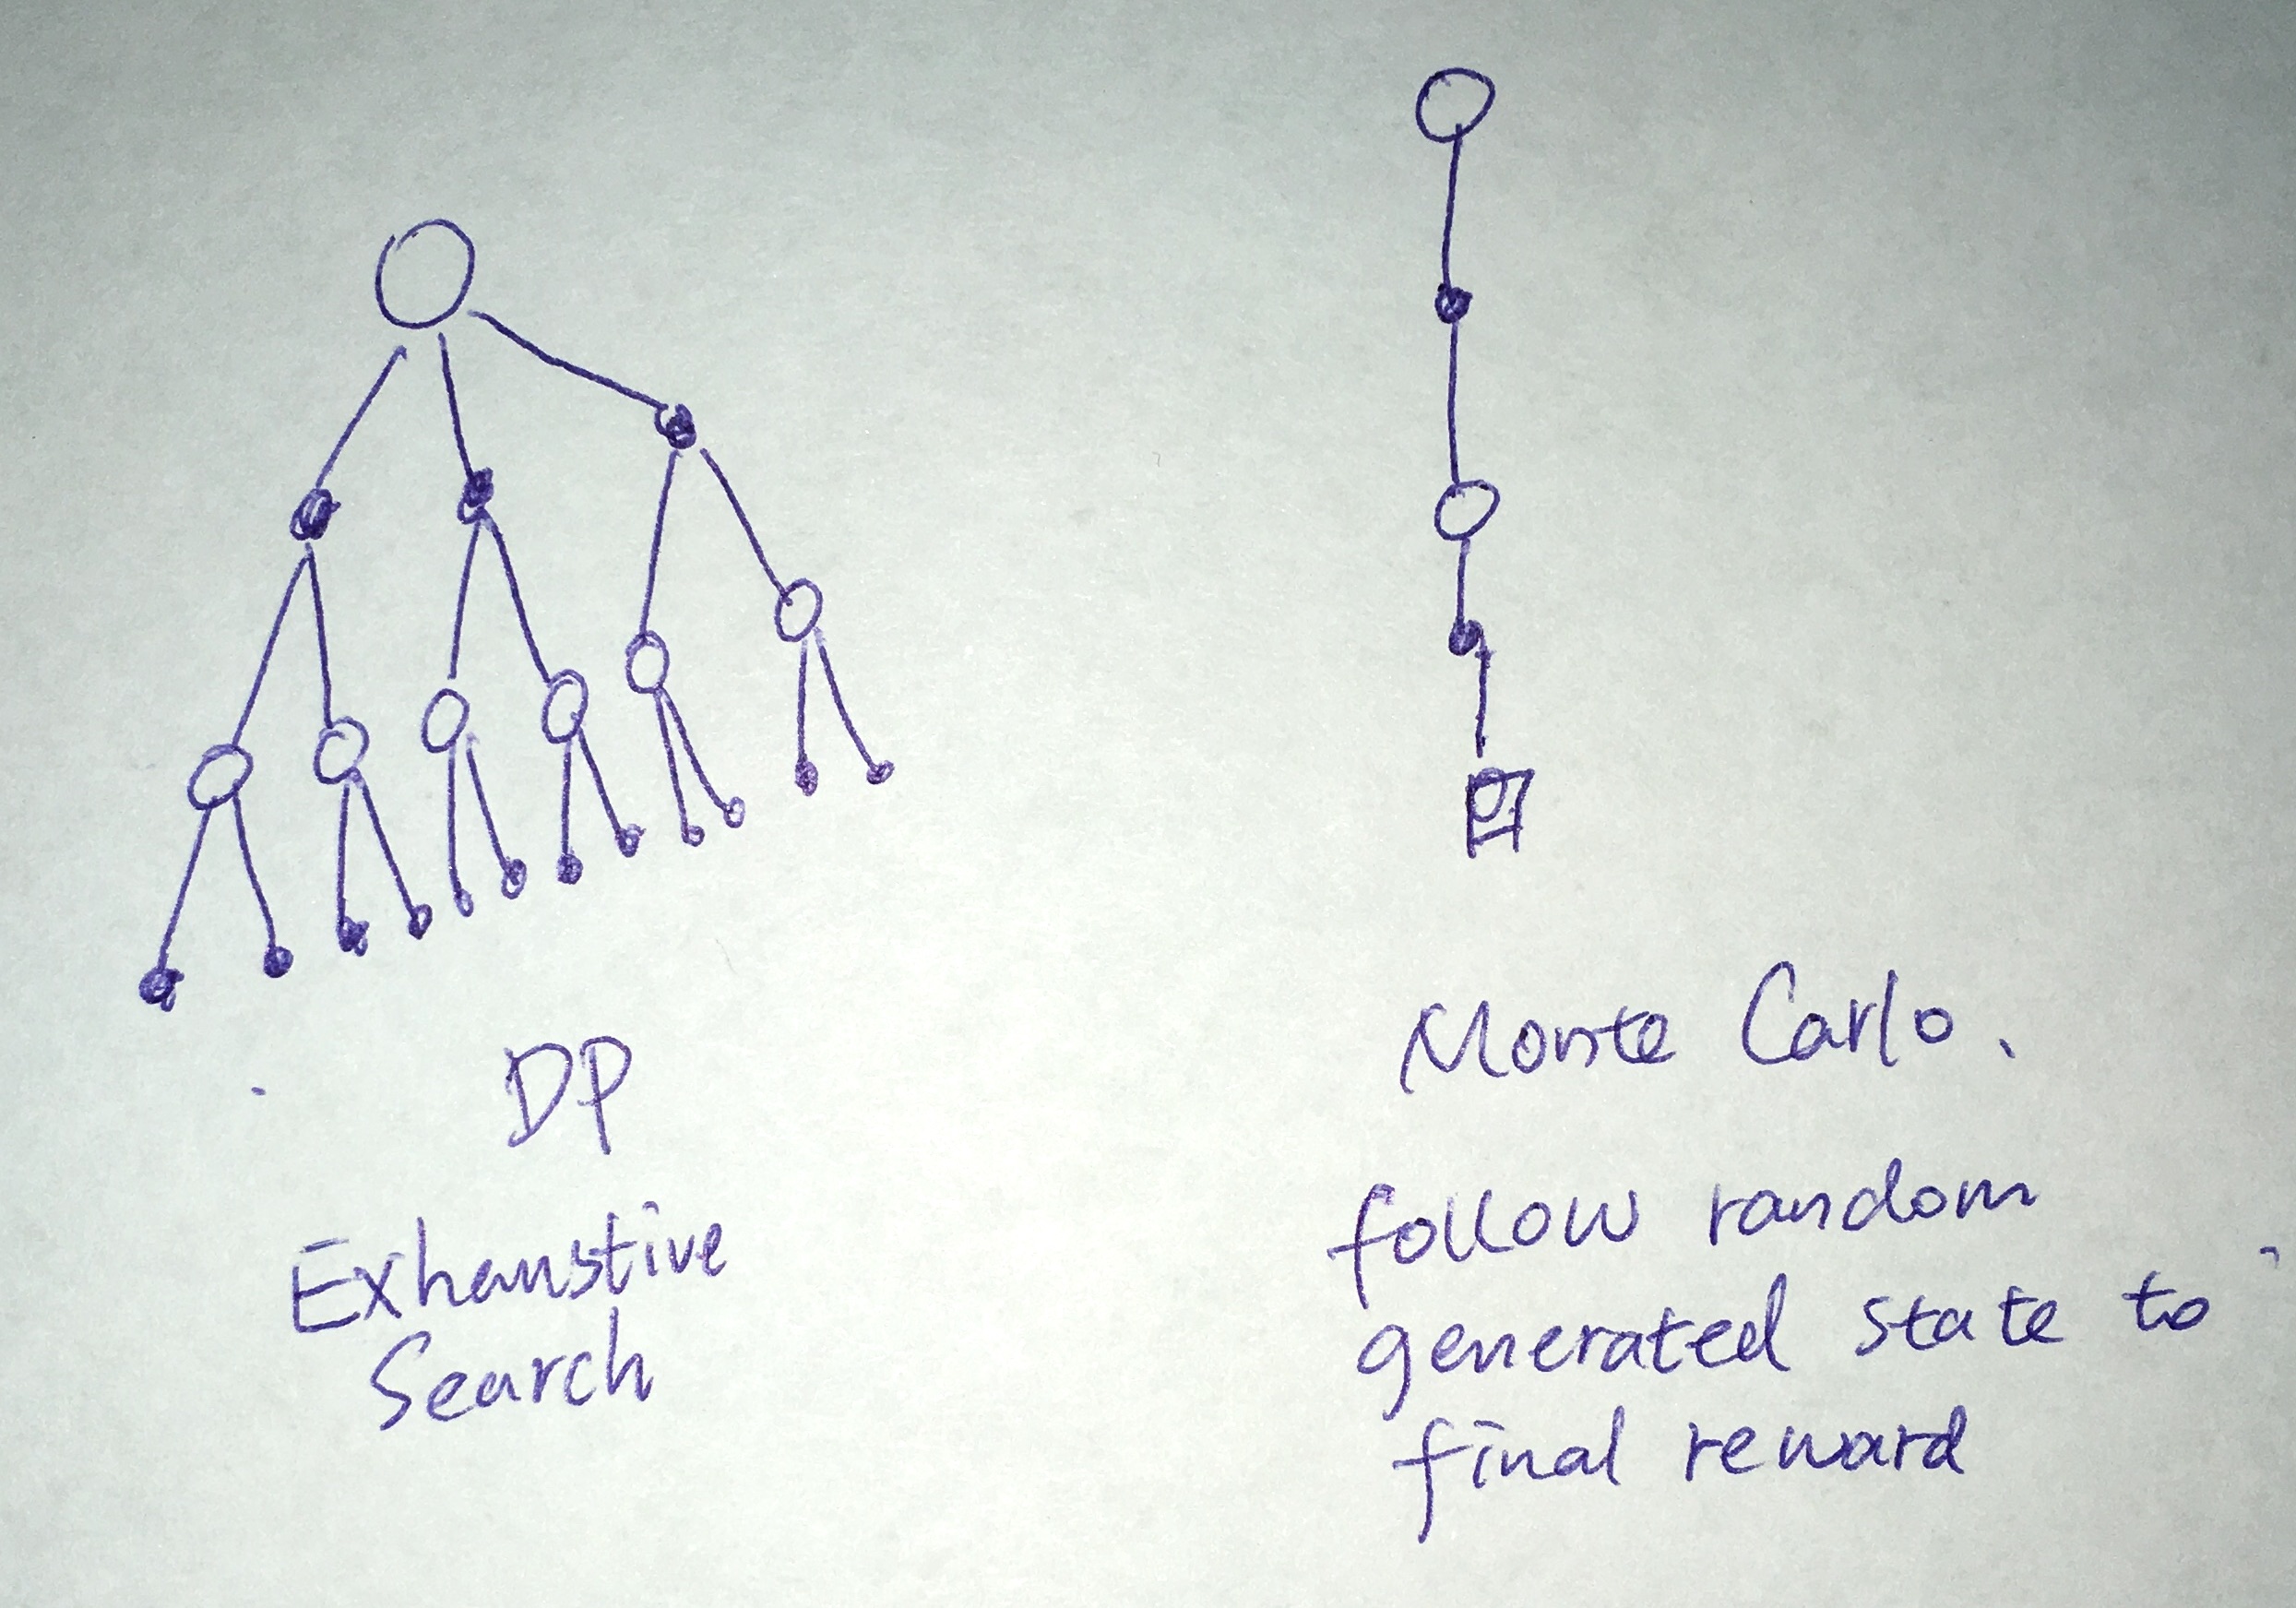 DP
Exhaustive
Search
Monte Carlo.
follow random
generated state to
final reward